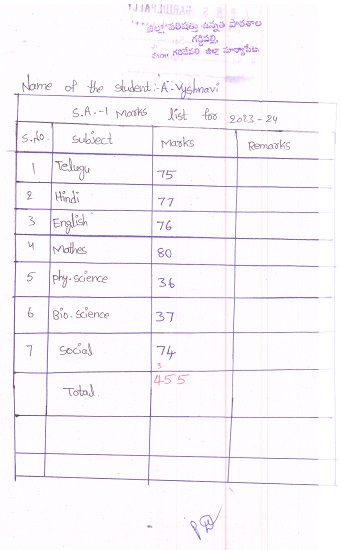 జిల్లా పరిషత్తు ఉన్నత పాఠశాల
గరిడేపల్లి,
మం॥ గరిడేపల్లి జిల్లా సూర్యాపేట.
Name of the student :- A. Vyshnavi
S.A.-1 Marks list for 2023-24
S.No Subject Marks Remarks
1 Telugu 75
2 Hindi 77
3 English 76
4 Mathes 80
5 phy.science 36
6 Bio.science 37
7 Social 74
3
Total 455